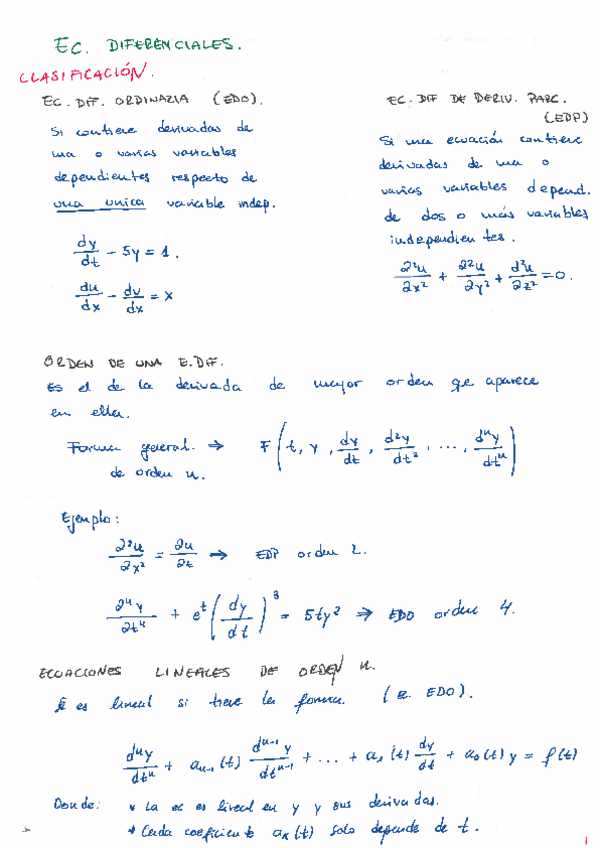 EC. DIFERENCIALES.
CLASIFICACIÓN.
EC. DIF. ORDINARIA (EDO).
Si contiene derivadas de
una o varias variables
dependientes respecto de
una unica variable indep.
dy/dt - 5y = 1.
du/dx - dv/dx = x
EC. DIF DE DERIV. PARC.
(EDP)
Si una ecuación contiene
derivadas de una o
varias variables depend.
de dos o más variables
independientes.
∂²u/∂x² + ∂²u/∂y² + ∂²u/∂z² = 0.
ORDEN DE UNA E.DIF.
Es el de la derivada de mayor orden qe aparece
en ella.
Forma general. → F(t, y, dy/dt, d²y/dt², ..., dⁿy/dtⁿ)
de orden n.
Ejemplo:
∂²u/∂x² = ∂u/∂t → EDP orden 2.
∂⁴y/∂t⁴ + eᵗ(dy/dt)³ = 5ty² → EDO orden 4.
ECUACIONES LINEALES DE ORDEN n.
es lineal si tiene la forma. (E. EDO).
dⁿy/dtⁿ + aₙ₋₁(t) dⁿ⁻¹y/dtⁿ⁻¹ + ... + a₁(t) dy/dt + a₀(t) y = f(t)
Donde: * La ec es lineal en y y sus derivadas.
* Cada coeficiente aₖ(t) solo depende de t.
1